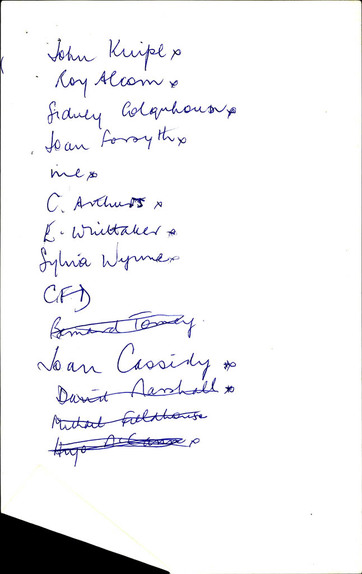 John Knipe x
Roy Alcorn x
Sidney Colquhoun x
Joan Forsyth x
me x
C. Arthurs x
E. Whittaker x
Sylvia Wynne x
CFD
Bernard
Joan Cassidy x
David Marshall x
Michael Fieldhouse
Hugo x